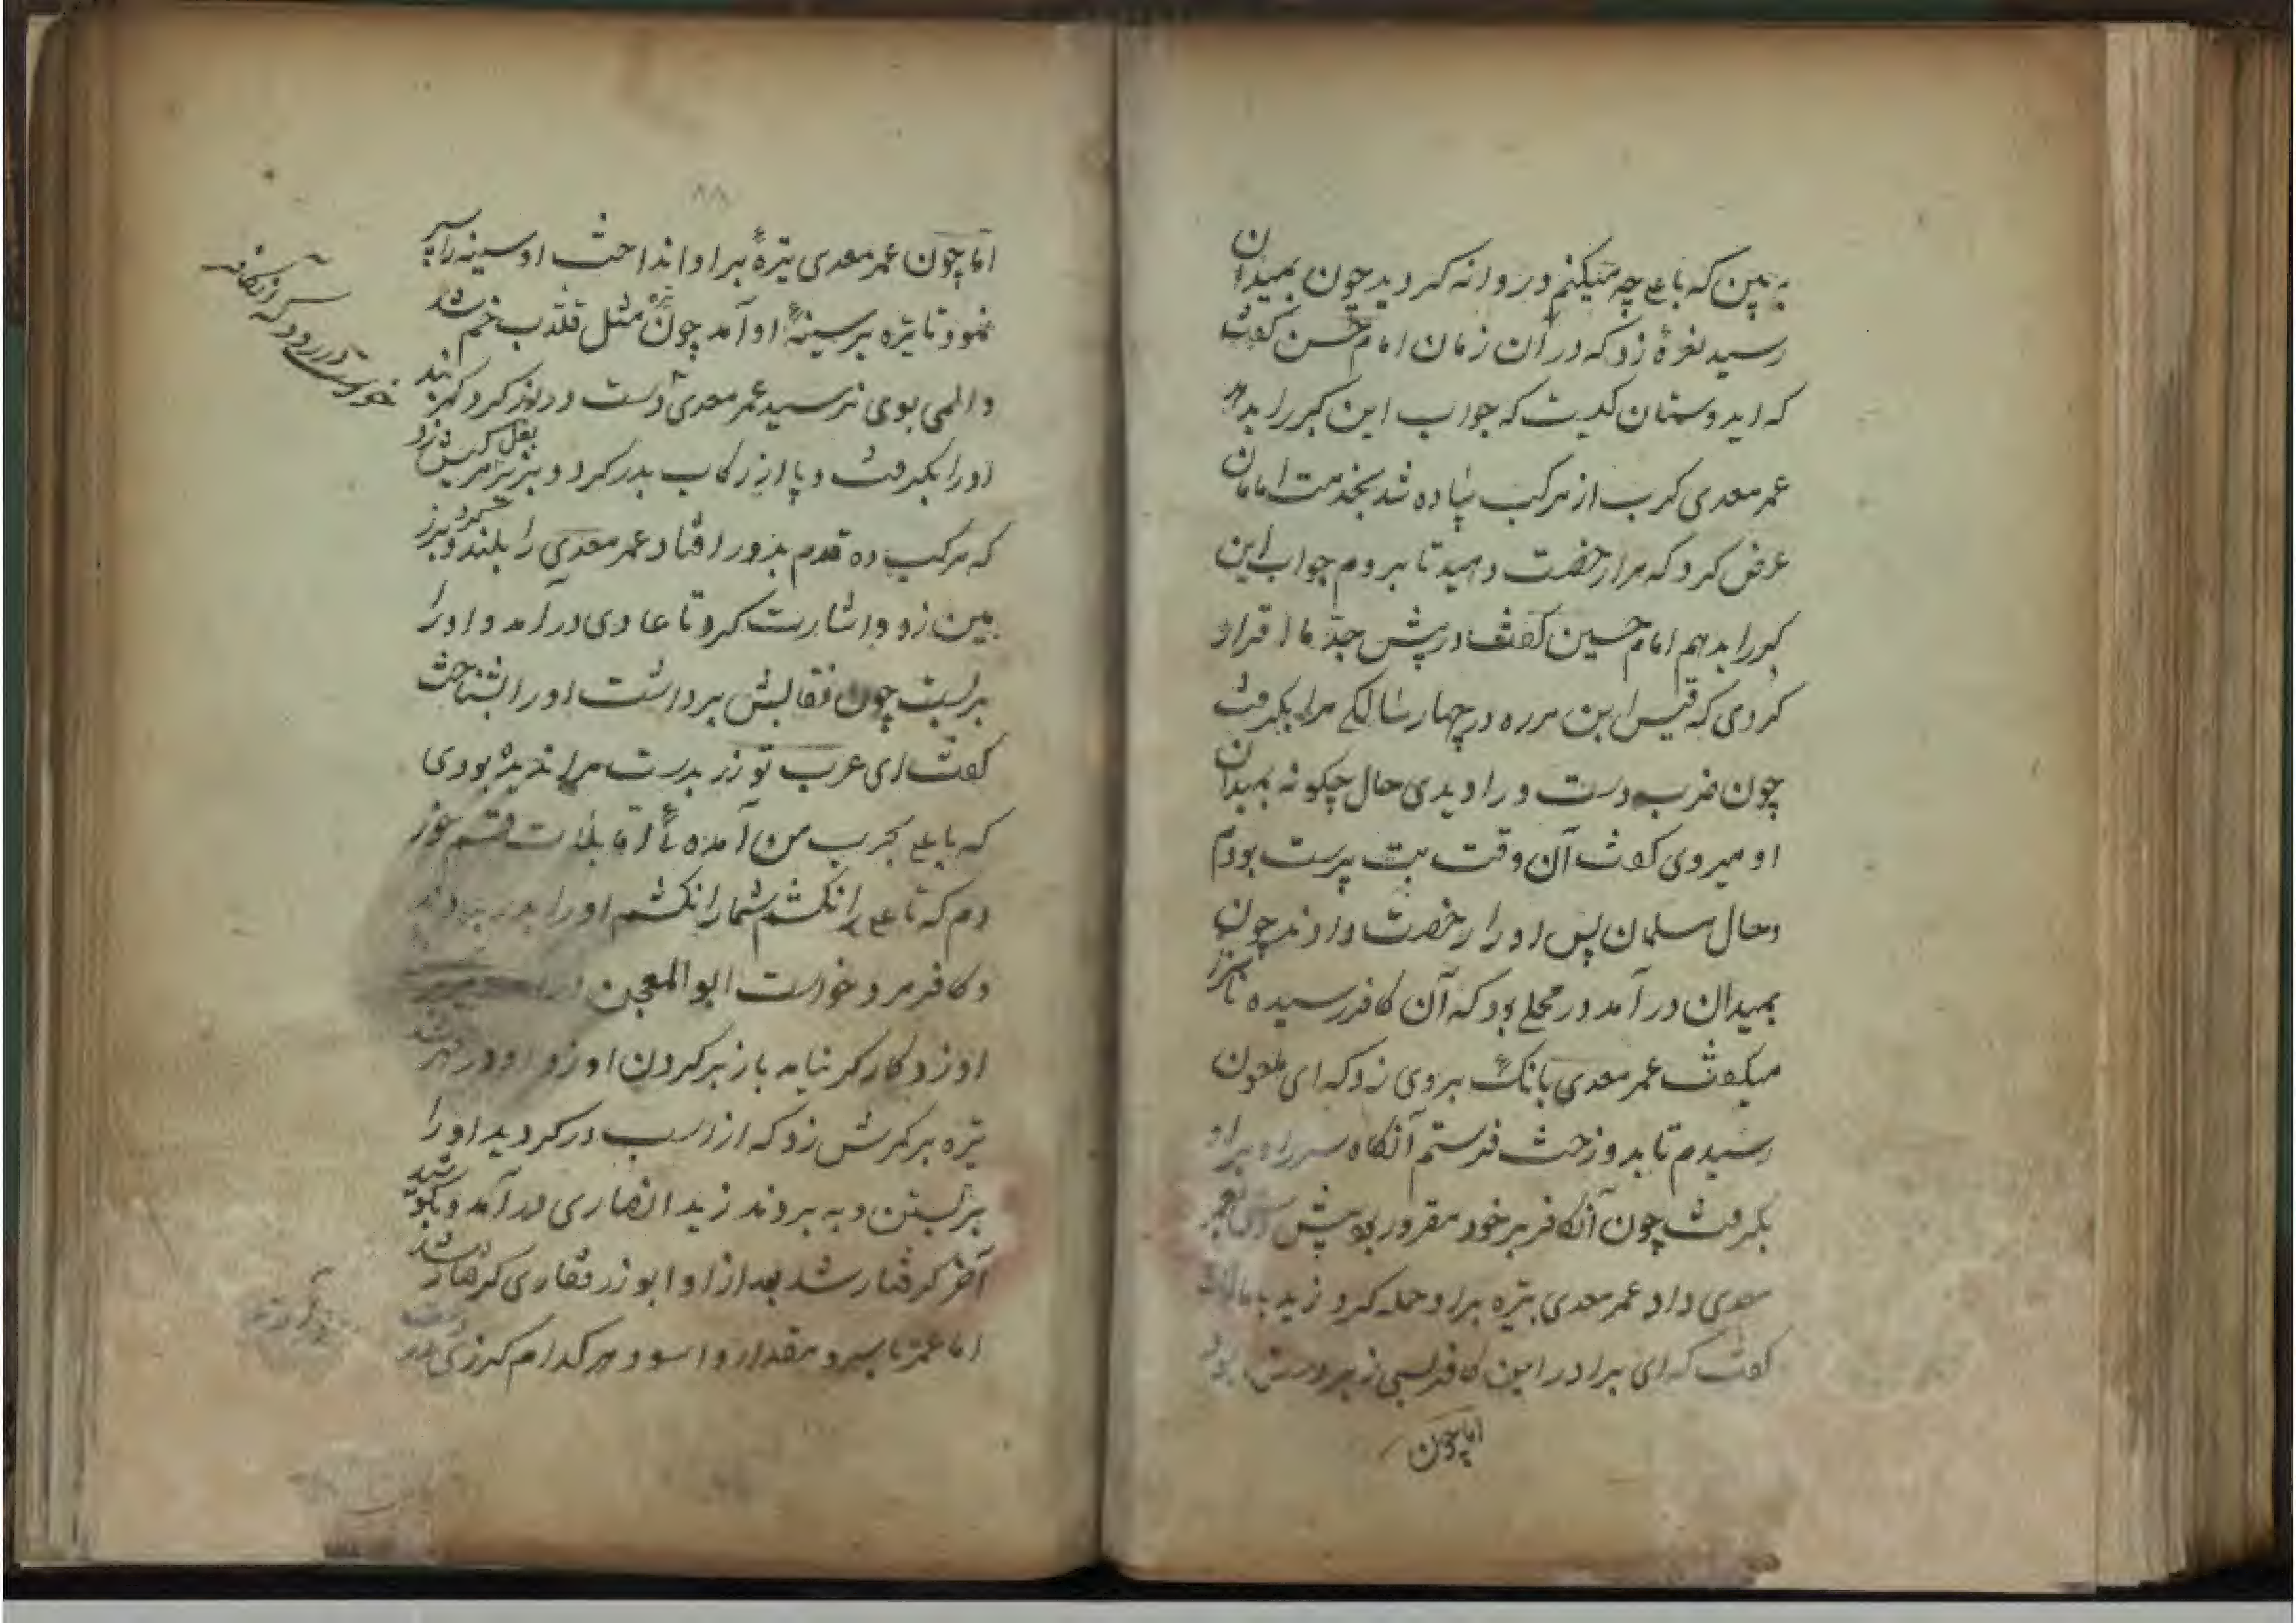 به بین که با علی چه میکنم و روانه گردید چون بمیدان
رسید نعرهٔ زد که در آن زمان امام حسن گفت
که ایدوستان کیست که جواب این کبر را بدهد
عمر معدی کرب از مرکب پیاده شد بخدمت امامان
عرض کرد که مرا رخصت دهید تا بروم جواب این
کبر را بدهم امام حسین گفت در پیش جد ما اقرار
کردی که قیس ابن مرره در چهار سالگی مرا بگرفت
چون ضرب دست و را دیدی حال چگونه بمیدان
او میروی گفت آن وقت بت پرست بودم
و حال مسلمان پس او را رخصت دادند چون
بمیدان در آمد در محلی بود که آن کافر رسیده ناسزا
میگفت عمر معدی بانگ بروی زد که ای ملعون
رسیدم تا بدوزخت فرستم آنگاه سر راه بر او
بگرفت چون آنکافر بر خود مقرور بود پیش دستی بعمر
معدی داد عمر معدی نیزه بر او حمله کرد زید با مالک
گفت که ای برادر این کافر بسی زبردست بود
اما چون
اما چون عمر معدی نیزهٔ بر او انداخت او سینه را سپر
نمود تا نیزه بر سینهٔ او آمد چون مثل قلاب خم شد
و المی بوی نرسید عمر معدی دست دراز کرد کمربند
او را بگرفت و پا از رکاب بدر کرد و بزیر بغل مرکبش زد
که مرکب ده قدم بدور افتاد عمر معدی را بلند کرد و بر ز
مین زد و اشارت کرد تا عادی در آمد و او را
بربست چون نقابش برداشت او را بشناخت
گفت ای عرب تو زر بدست مرا ندیده بودی
که با علی بحرب من آمدهٔ اما بلات قسم خور
دم که تا علی را نکشم شما را نکشم او را بدر بردند
و کافر مرد خواست ابو المعجن در
او زد کارگر نیامد باز بر گردن او زد او در قهر شد
نیزه بر کمرش زد که از اسب در گردید او را
بر بستن و به بردند زید انصاری در آمد و بکوشید
آخر گرفتار شد بعد از او ابوذر غفاری گرفتار شد
اما عمر یاسر و مقداد و اسود هر کدام گرزی
خواست در رود که آنکافر